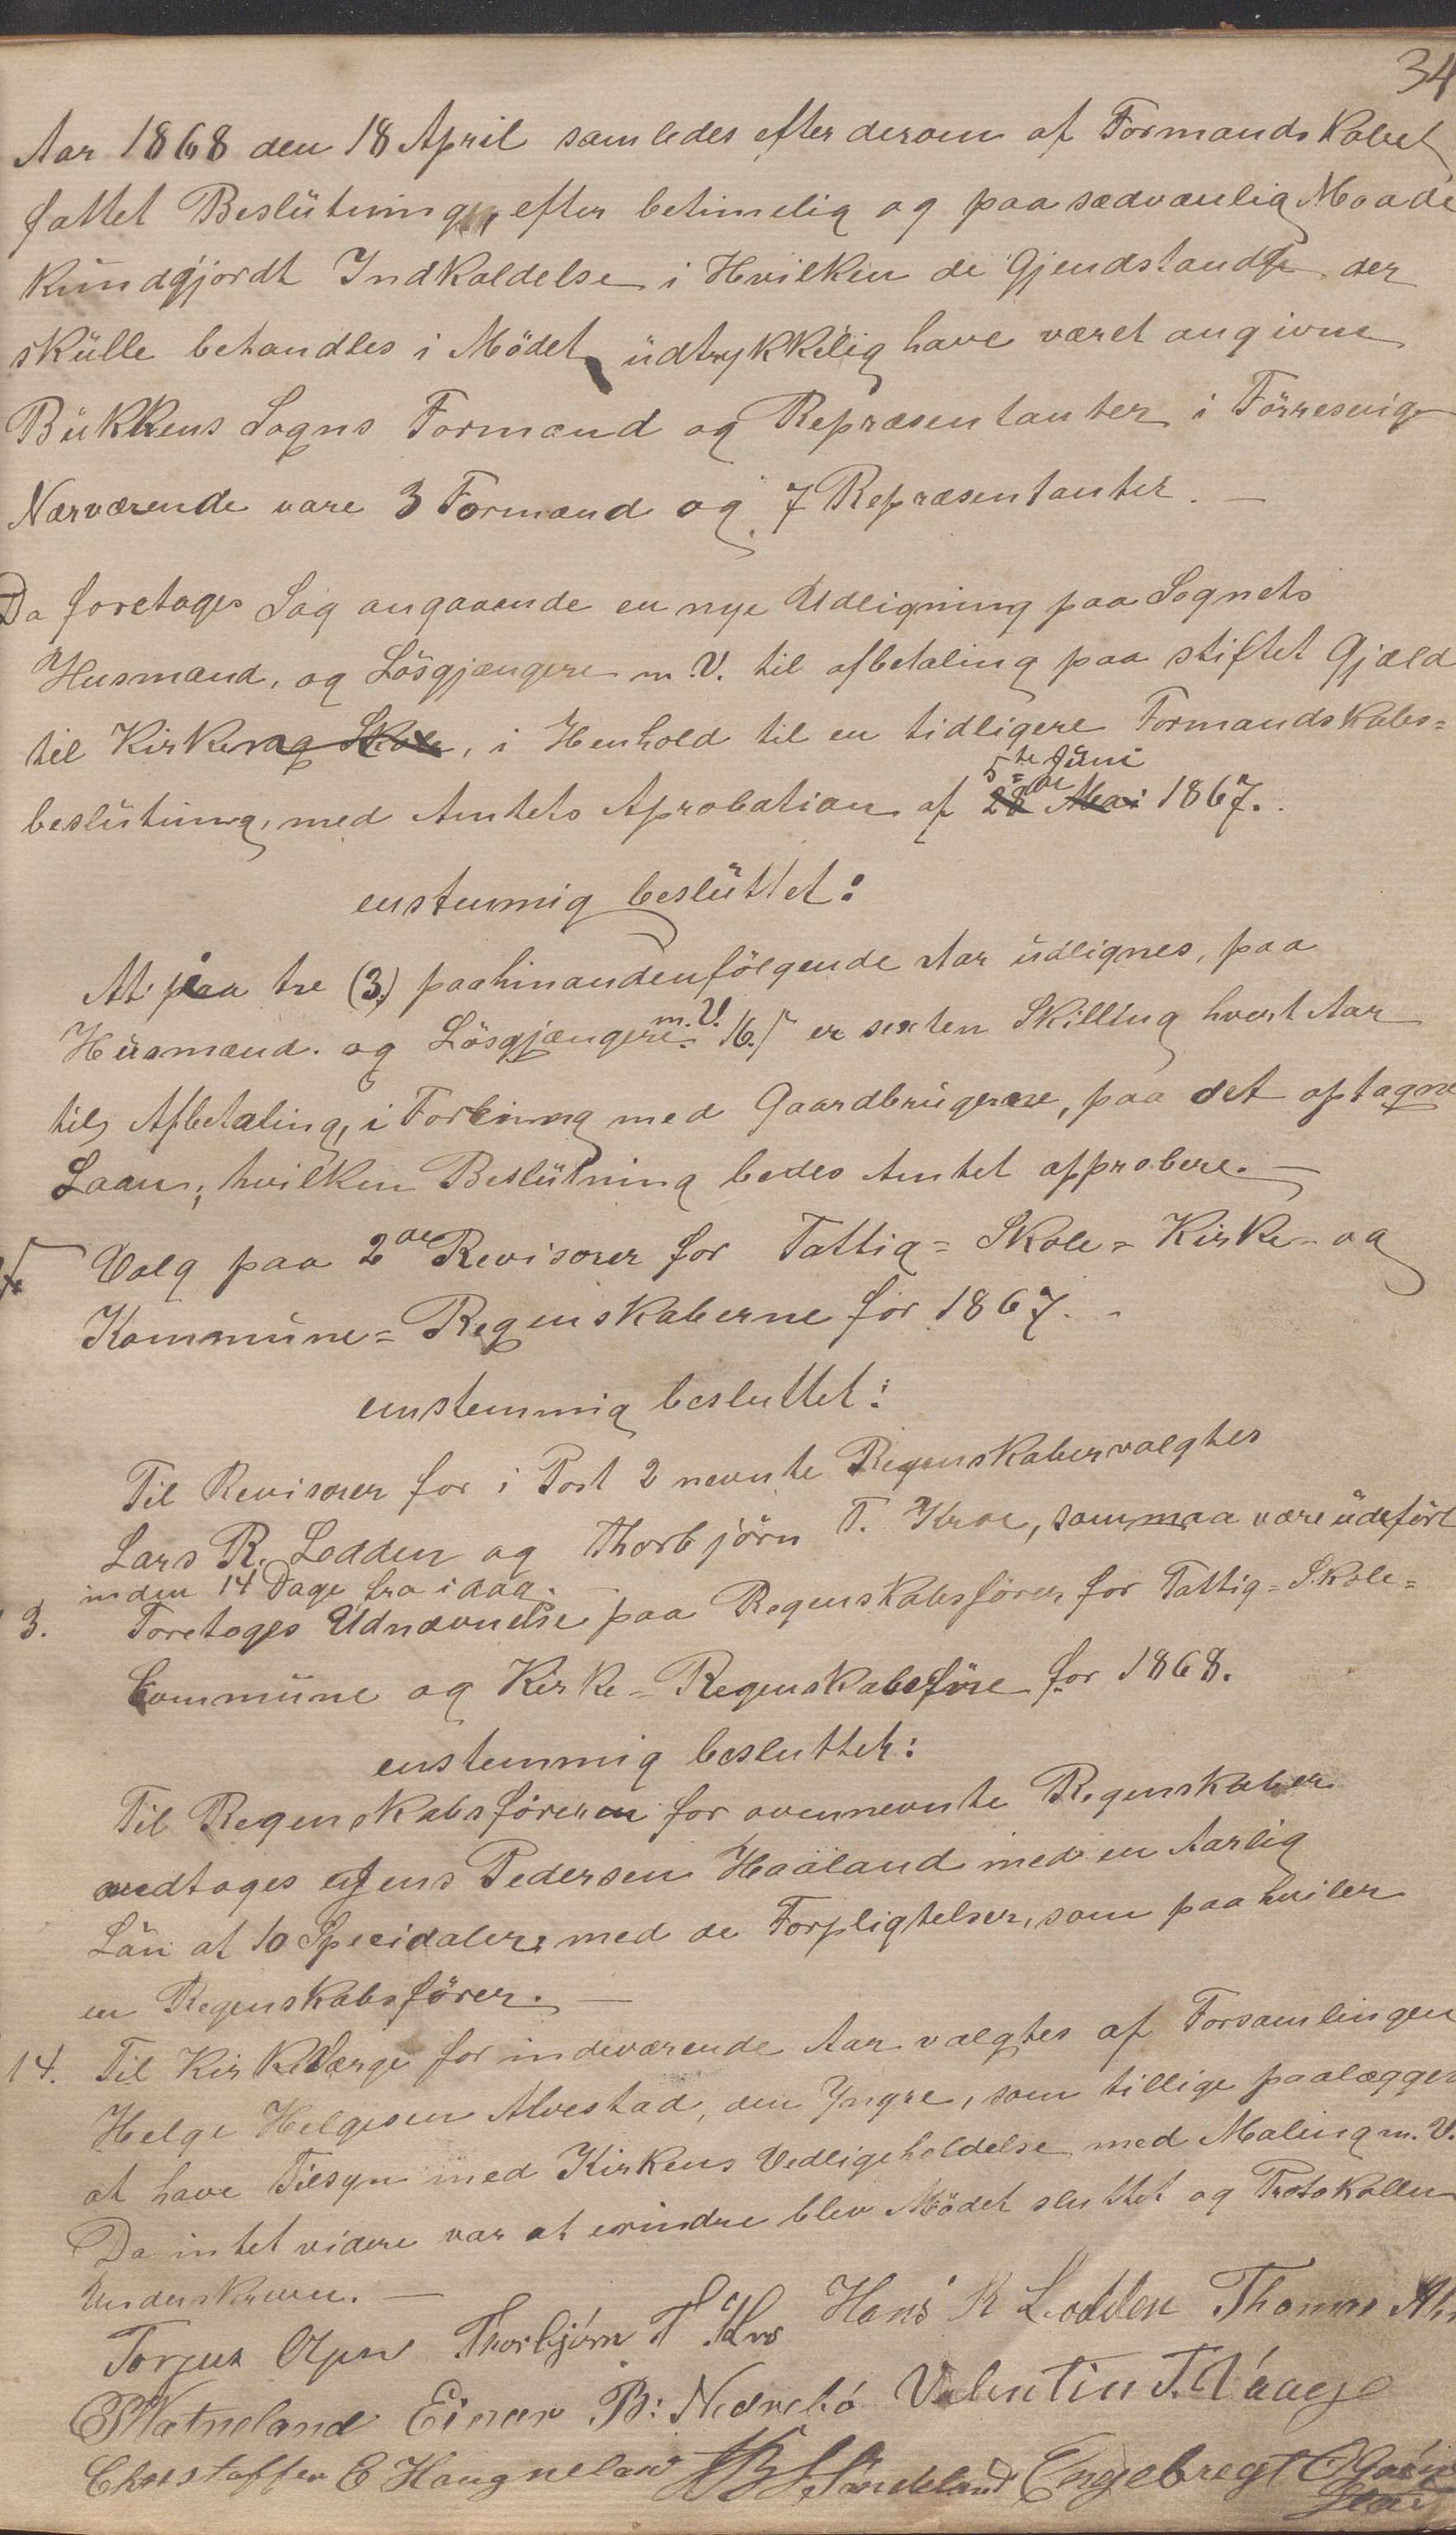 34
Aar 1868 den 18 April samledes efter derom af Formandskabet
fattet Beslutning, efter betimelig og paa sædvanlig Maade
kundgjordt Indkaldelse i Hvilken de Gjendstande der
skulle behandles i Mödet udtrykkelig have været angivne
Bukkens Sogns Formænd og Repræsentanter i Förresvig
Nærværende vare 3 Formænd og 7 Repræsentanter. —
Da foretoges Sag angaaende en nye Udligning paa Sognets
Husmænd, og Lösgjængere m.V. til afbetaling paa stiftet Gjæld
til Kirken og Skole, i Henhold til en tidligere Formandskabs=
5te Juni
beslutning, med Amtets Aprobation af 28de Mai 1867.
enstemmig besluttet:
At i tre (3) paahinandenfölgende Aar udlignes, paa
Husmænd. og Lösgjængere m.V. 16 ß er sexten Skilling hvert Aar
til Afbetaling, i Forbinng med Gaardbrugerne, paa det optagne
Laan; hvilken Beslutning bedes Amtet approbere. —
Valg paa 2de Revisorer for Fattig= Skole= Kirke= og
Kommune= Regenskaberne for 1867. -
enstemmig besluttet:
Til Revisorer for i Post 2 nevnte Regenskaber valgtes
Lars R. Lodden og Thorbjörn T. Kroe, som maa være udfört
inden 14 Dage fra idag.
3. Foretoges Udnævnelse paa Regenskabsförer for Fattig= Skole=
Commune og Kirke= Regenskabsföre for 1868.
enstemmig besluttet:
Til Regenskabsföreren for ovennevnte Regenskaber
vedtoges Jens Pedersen Haaland med en Aarlig
Lön at 10 Specidaler; med de Forpligtelser, som paahviler
en Regenskabsförer. —
14. Til KirkeVærge for indeværende Aar valgtes af Forsamlingen
Helge Helgesen Alvestad, den Yngre, som tillige paalægges
at have Tilsyn med Kirkens Vedligeholdelse med Maling m.V.
Da intet videre var at erindre blev Mödet sluttet og Protokollen
Underskreven. —
Torjus Thorbjörn T Kro Hans R Lodden Thomas
Watneland Einar B: Nedrebö Valentin T. Vaage
Christoffer E Haugneland Engebregt